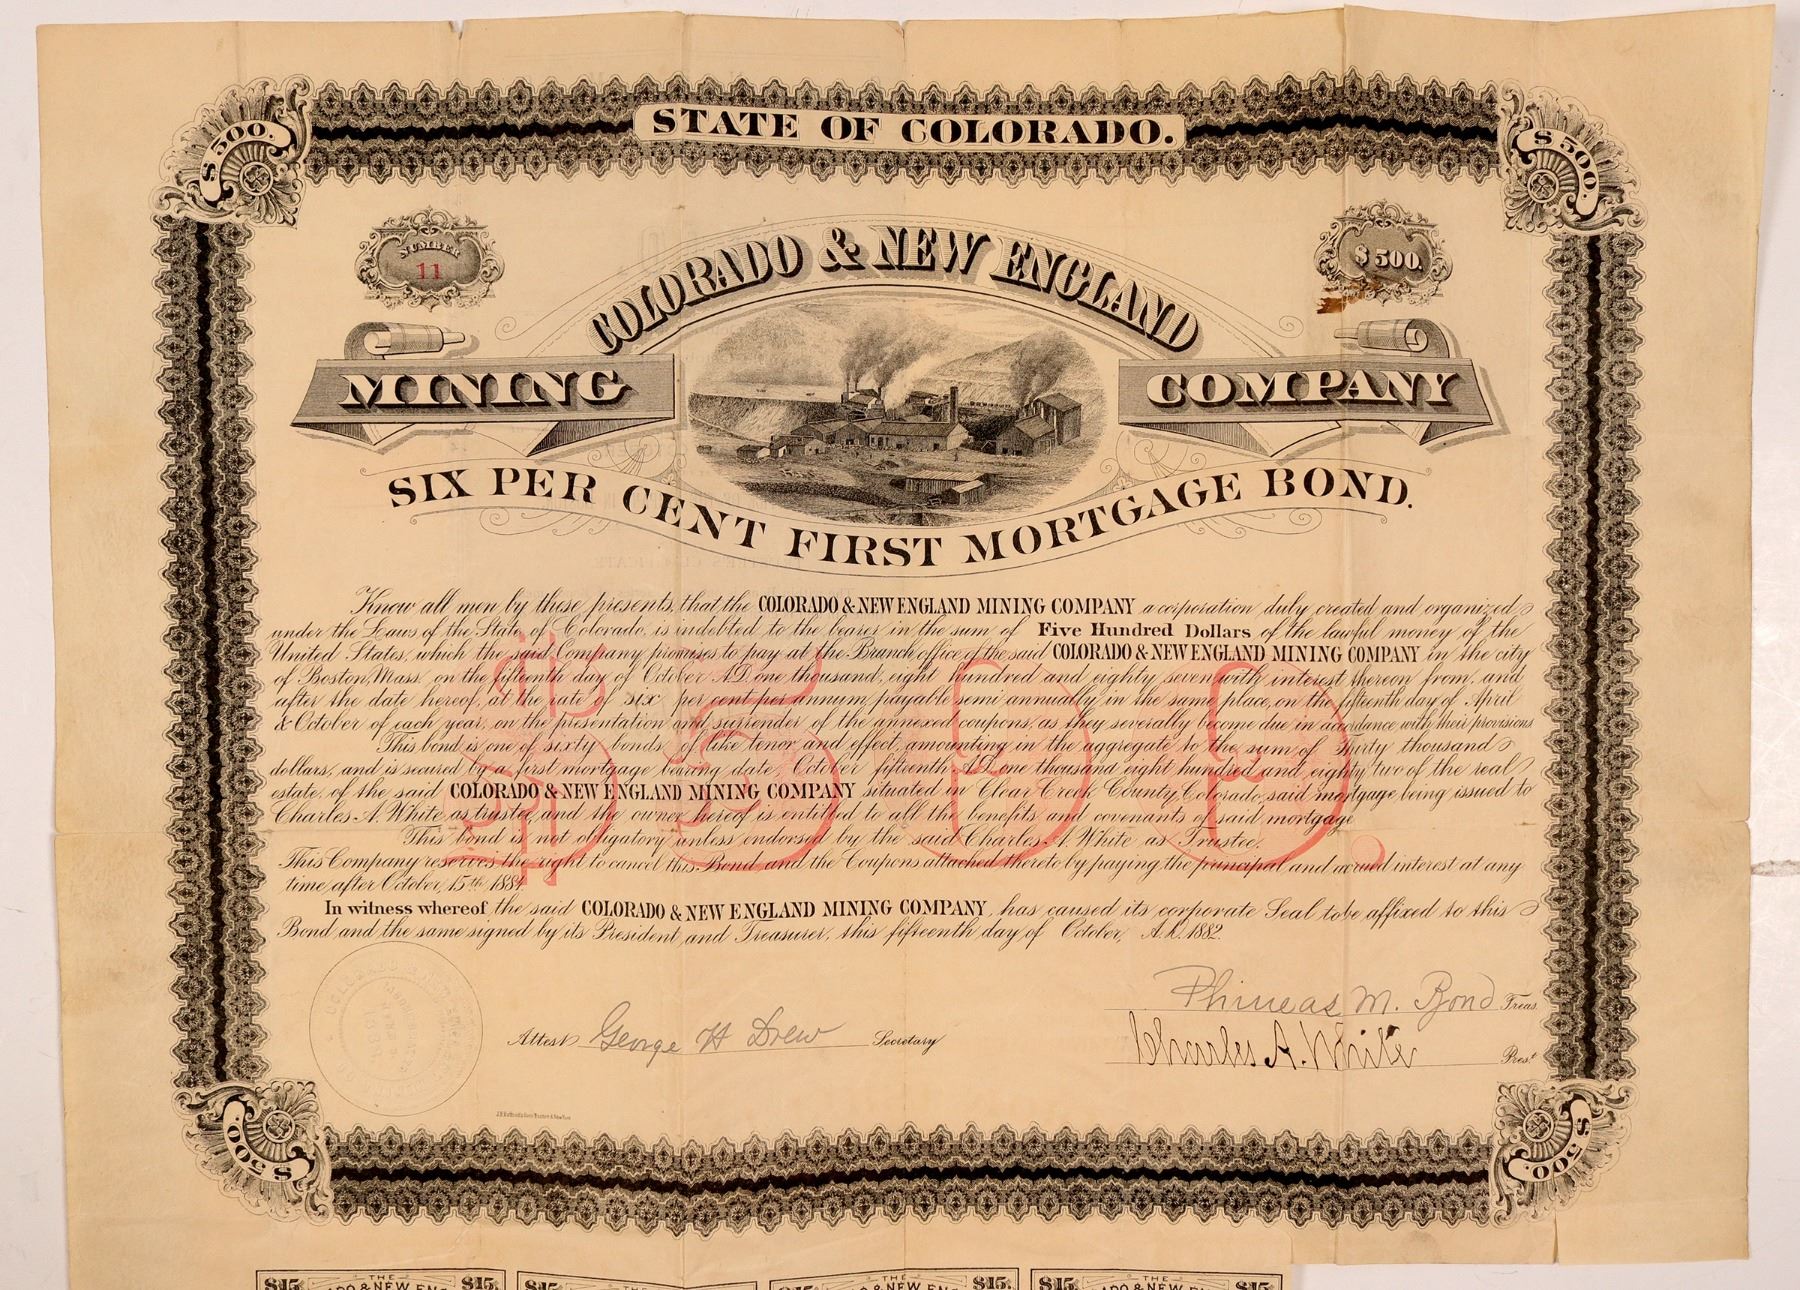 STATE OF COLORADO.
$500.
$500.
NUMBER
11
$500.
COLORADO & NEW ENGLAND
MINING
COMPANY
SIX PER CENT FIRST MORTGAGE BOND.
Know all men by these presents, that the COLORADO & NEW ENGLAND MINING COMPANY a corporation duly created and organized
under the Laws of the State of Colorado, is indebted to the bearer in the sum of Five Hundred Dollars of the lawful money of the
United States, which the said Company promises to pay at the Branch office of the said COLORADO & NEW ENGLAND MINING COMPANY in the city
of Boston, Mass. on the fifteenth day of October A.D. one thousand, eight hundred and eighty seven with interest thereon from, and
after the date hereof, at the rate of six per cent per annum, payable semi annually in the same place, on the fifteenth day of April
& October of each year, on the presentation and surrender of the annexed coupons, as they severally become due in accordance with their provisions
This bond is one of sixty bonds of like tenor and effect, amounting in the aggregate to the sum of Thirty thousand
dollars, and is secured by a first mortgage bearing date, October fifteenth, A.D. one thousand eight hundred and eighty two of the real
estate, of the said COLORADO & NEW ENGLAND MINING COMPANY situated in Clear Creek County, Colorado, said mortgage, being issued to
Charles A. White as trustee, and the owner hereof is entitled to all the benefits and covenants of said mortgage
This bond is not obligatory unless endorsed by the said Charles A. White as Trustee.
This Company reserves the right to cancel this Bond and the Coupons attached thereto by paying the principal and accrued interest at any
time after October, 15th, 1884.
In witness whereof, the said COLORADO & NEW ENGLAND MINING COMPANY, has caused its corporate Seal to be affixed to this
Bond and the same signed by its President, and Treasurer, this fifteenth day of October, A.D. 1882.
$500.
Phineas M. Bond Treas.
Attest George H Drew Secretary
Charles A. White Prest
$500.
$500.
$15. THE $15.
$15.
$15. THE $15.
$15. THE $15.